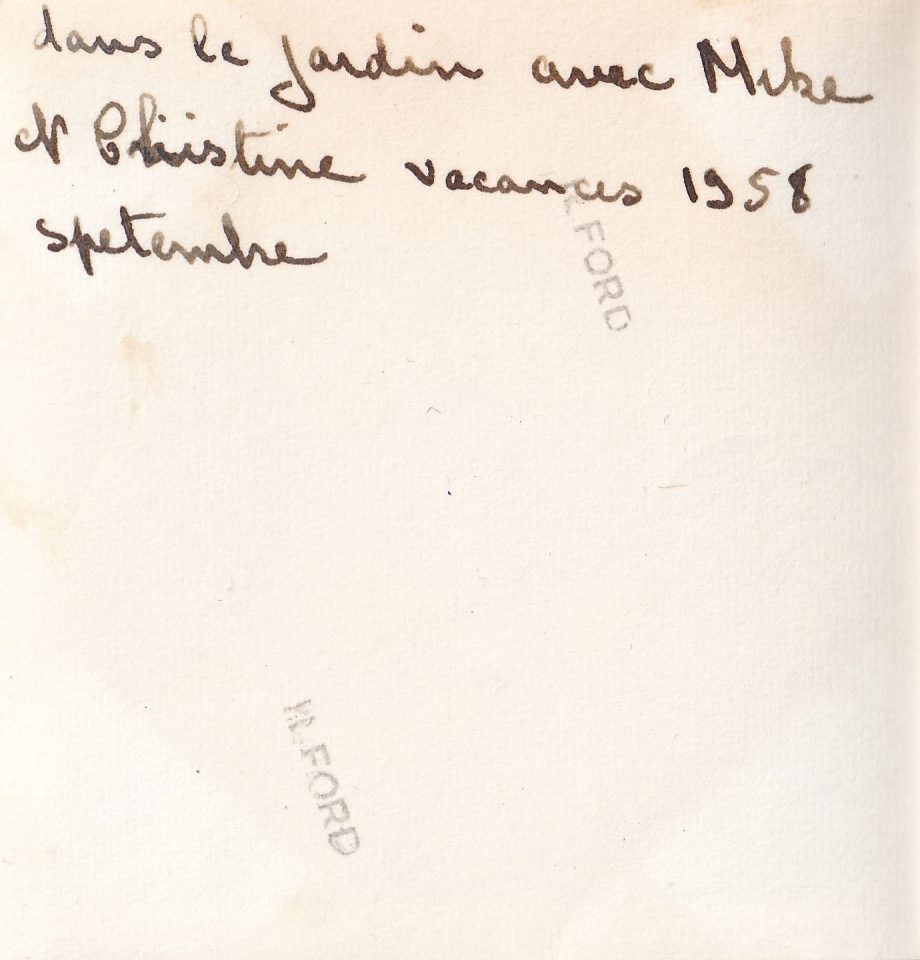 dans le jardin avec Mike
et Christine vacances 1958
spetembre
ILFORD
ILFORD